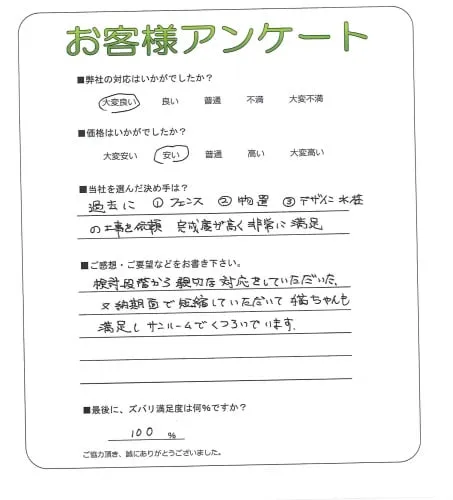 お客様アンケート
■弊社の対応はいかがでしたか?
大変良い 良い 普通 不満 大変不満
■価格はいかがでしたか?
大変安い 安い 普通 高い 大変高い
■当社を選んだ決め手は?
過去に ① フェンス ② 物置 ③ デザイン水栓
の工事を依頼 完成度が高く非常に満足
■ご感想・ご要望などをお書き下さい。
検討段階から親切な対応をしていただいた
又納期面で短縮していただいて猫ちゃんも
満足しサンルームでくつろいでいます。
■最後に、ズバリ満足度は何%ですか?
100 %
ご協力頂き、誠にありがとうございました。